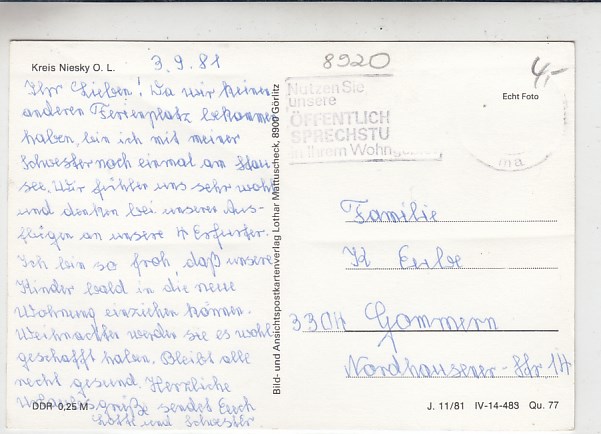 Kreis Niesky O. L.
3.9.81
Ihr Lieben! Da wir keinen
anderen Ferienplatz bekommen
haben, bin ich mit meiner
Schwester noch einmal am Stau-
see. Wir fühlen uns sehr wohl
und denken bei unseren Aus-
flügen an unsere 4 Erfurter.
Ich bin so froh daß unsere
Kinder bald in die neue
Wohnung einziehen können.
Weihnachten werden sie es wohl
geschafft haben. Bleibt alle
recht gesund. Herzliche
Urlaubsgrüße sendet Euch
Lotte und Schwester
DDR 0,25 M
Bild- und Ansichtspostkartenverlag Lothar Mattuscheck, 8900 Görlitz
8920
4,-
Nutzen Sie
unsere
ÖFFENTLICH
SPRECHSTU
in Ihrem Wohngebiet
Echt Foto
ma
Familie
K
3304 Gommern
Nordhausener-Str 14
J. 11/81 IV-14-483 Qu. 77